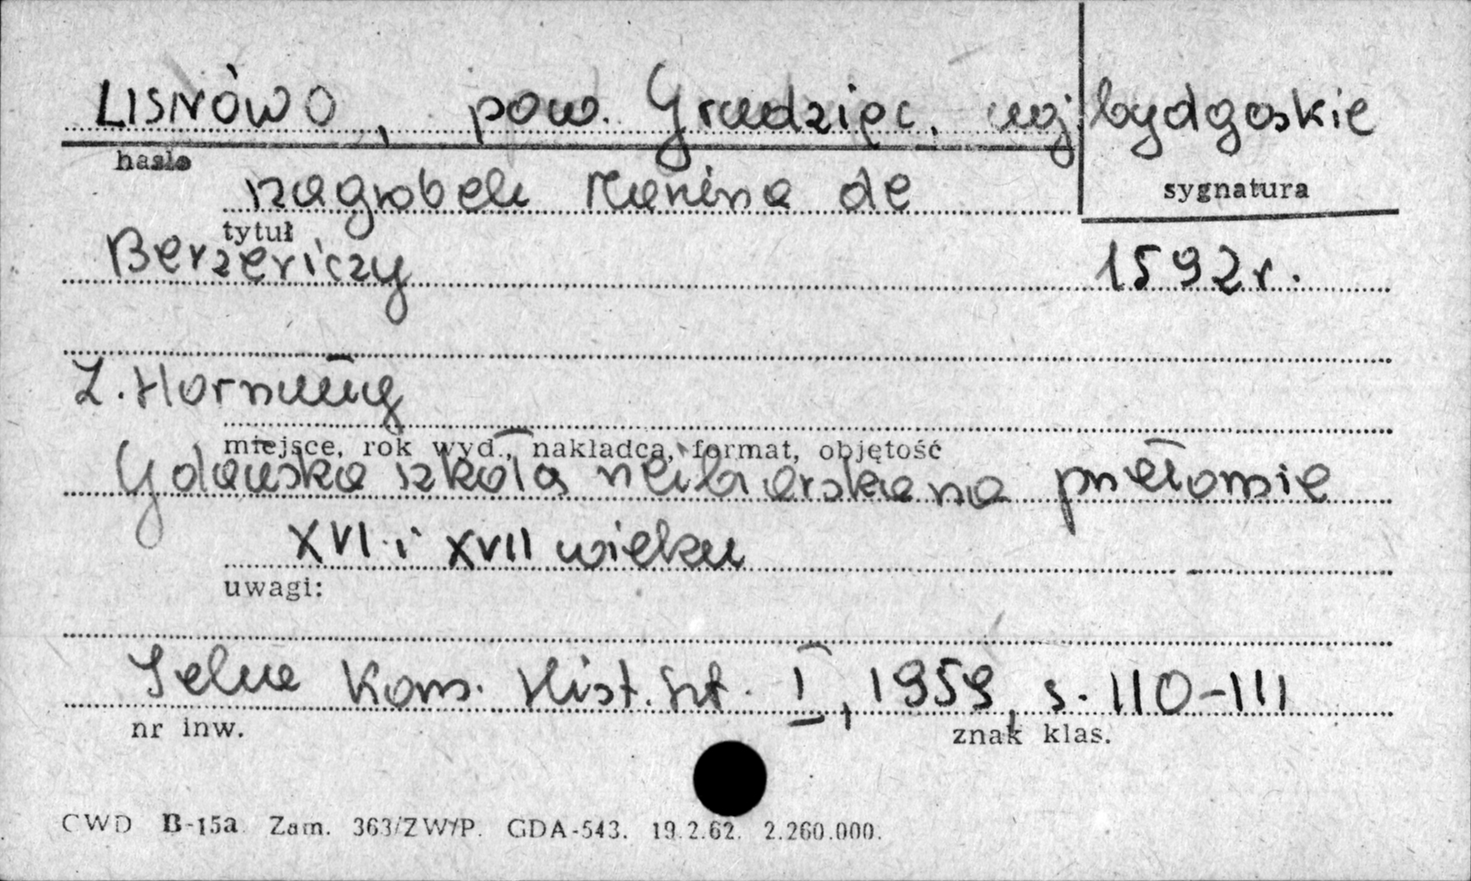 LISNÓWO, pow. Grudziąc. woj. bydgoskie
hasło
sygnatura
nagrobek de
tytuł
Berzeviczy 1592r.
Z. Hornung
miejsce, rok wyd., nakładca, format, objętość
Gdańska szkoła rzeźbiarska na przełomie
XVI i XVII wieku
uwagi:
Kom. Hist. Szt. I, 1959, s. 110-111
nr inw.
znak klas.
CWD B-15a Zam. 363/ZW/P. GDA-543. 19.2.62. 2.260.000.